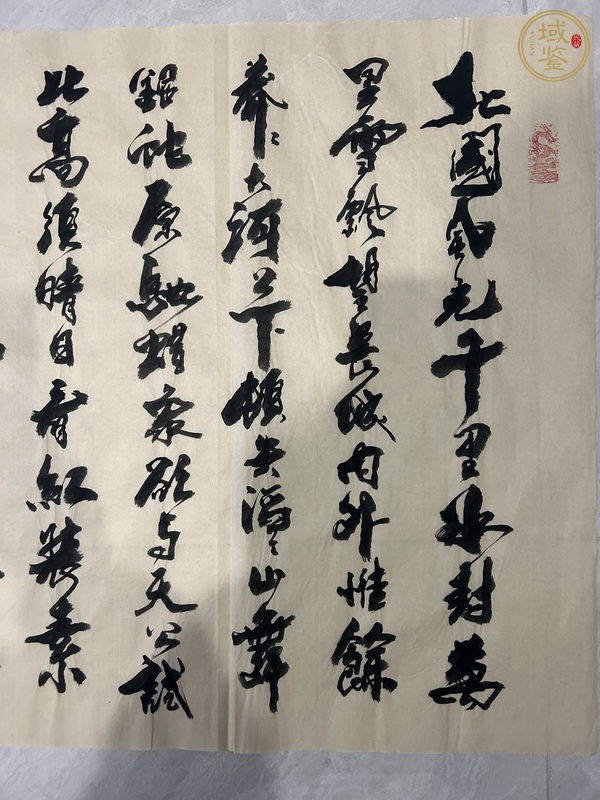 北國風光千里冰封萬
里雪飄望長城内外惟餘
莽〻大河上下頓失滔〻山舞
銀蛇原馳蜡象欲与天公試
比高須晴日看紅裝素
域鉴